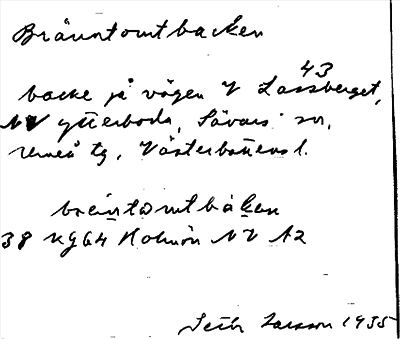 Bränntomtbacken
43
backe på vägen V Lassberget,
NV Ytterboda, Sävars sn,
Umeå tg, Västerbottens l.
bräntomtbakan
38 Kg64 Holmön NV A2
Seth Larsson 1935